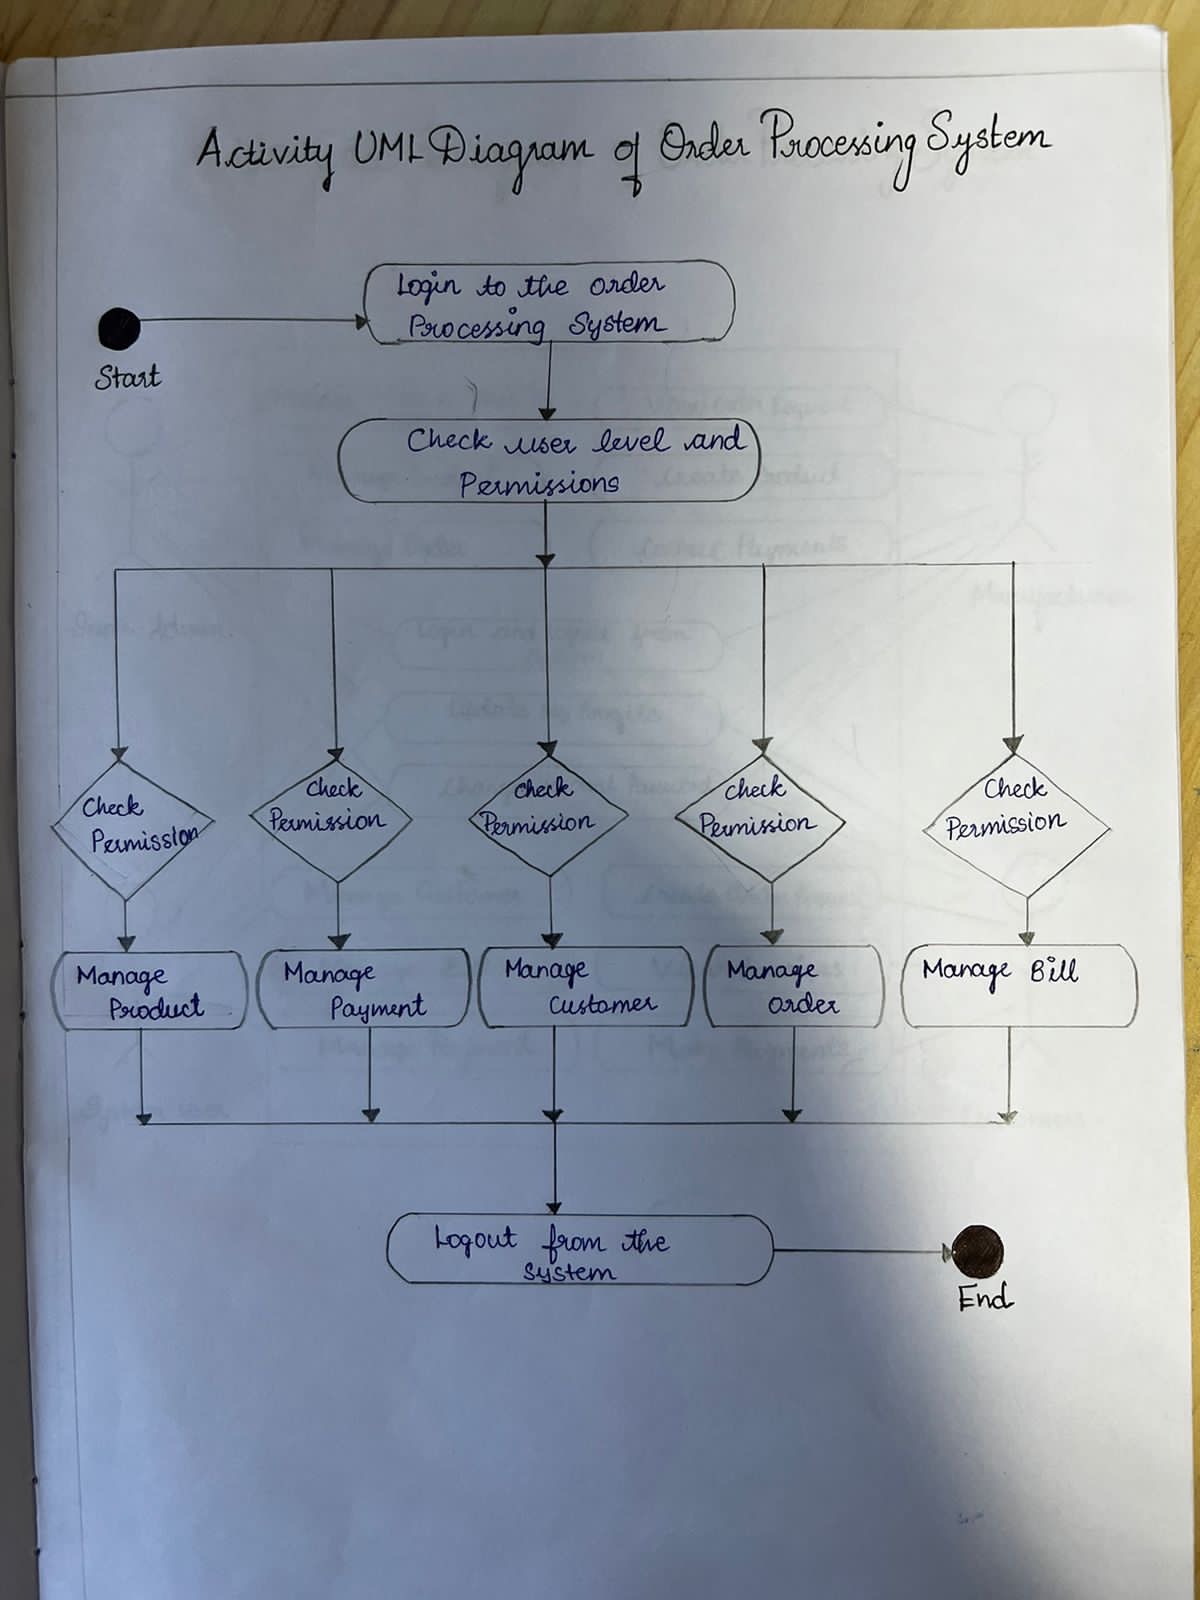 Activity UML Diagram of Order Processing System
Login to the order
Processing System
Start
Check user level and
Permissions
Check
Permission
Check
Permission
Check
Permission
Check
Permission
Check
Permission
Manage
Product
Manage
Payment
Manage
Customer
Manage
order
Manage Bill
Logout from the
system
End